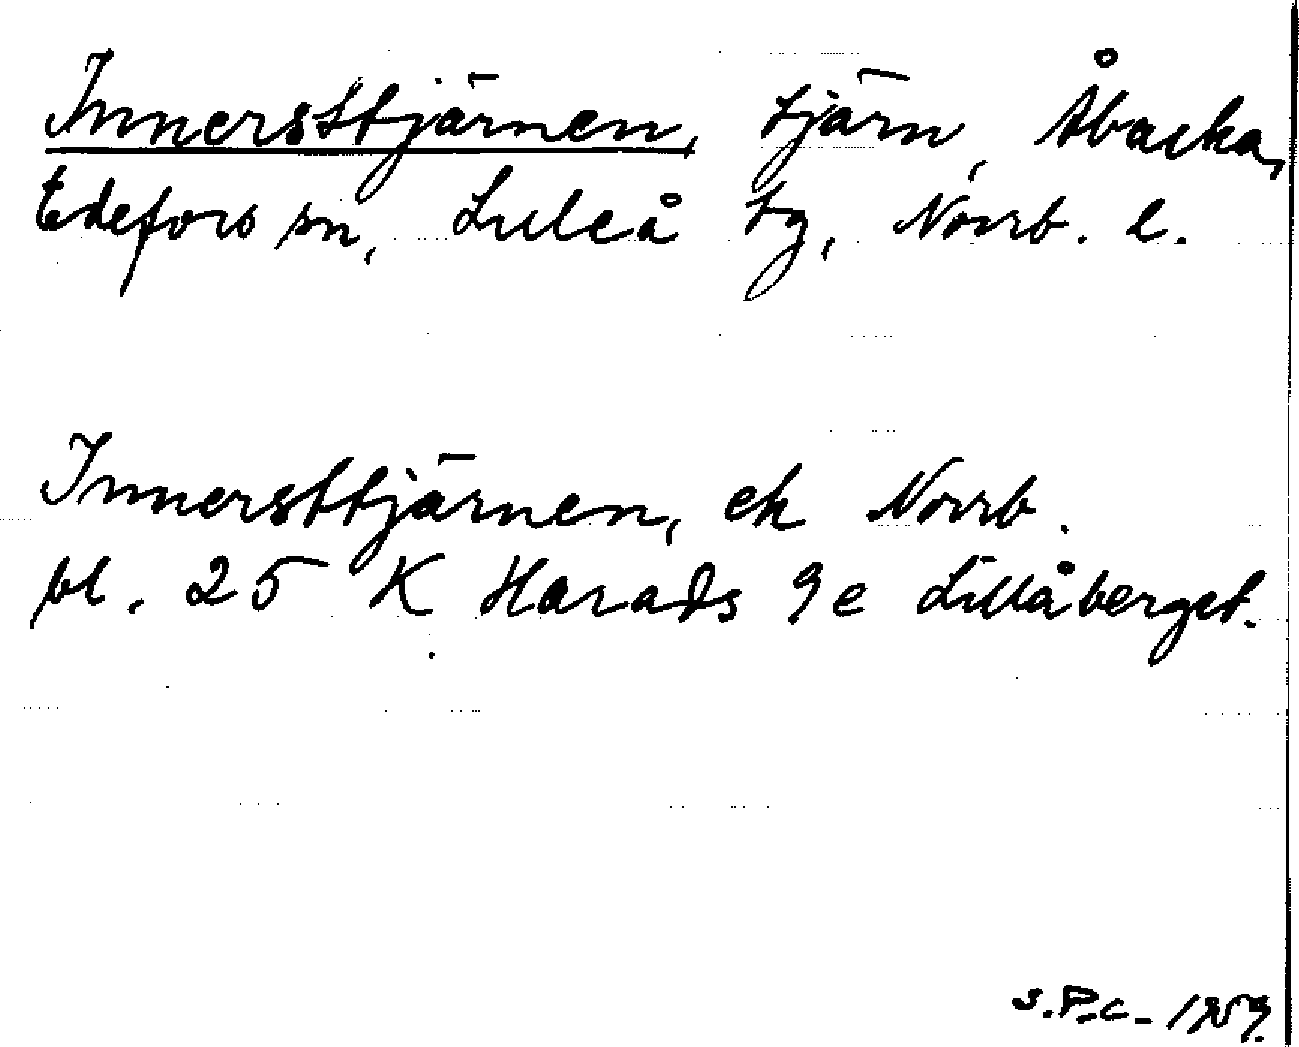 Innersttjärnen, tjärn, Åbacka,
Edefors sn, Luleå tg, Norrb. l.
Innersttjärnen, ek Norrb.
bl. 25 K Harads 9e Lillåberget.
S.P.C. 1959.